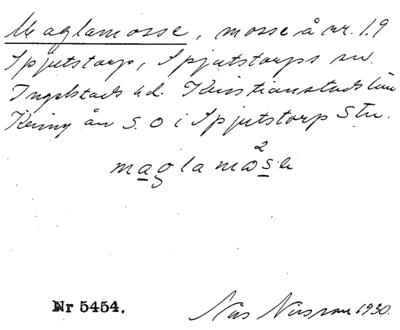 Maglamosse, mosse å nr. 1.9
Spjutstorp, Spjutstorps sn.
Ingelstads hd. Kristianstads län
Kring ån S.O i Spjutstorp Stn.
maglamos²e
Nr 5454. Nils Nilsson 1930.